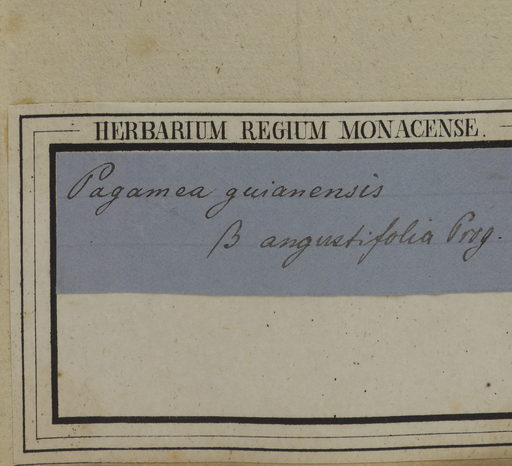 HERBARIUM REGIUM MONACENSE.
Pagamea guianensis
β angustifolia Prog.